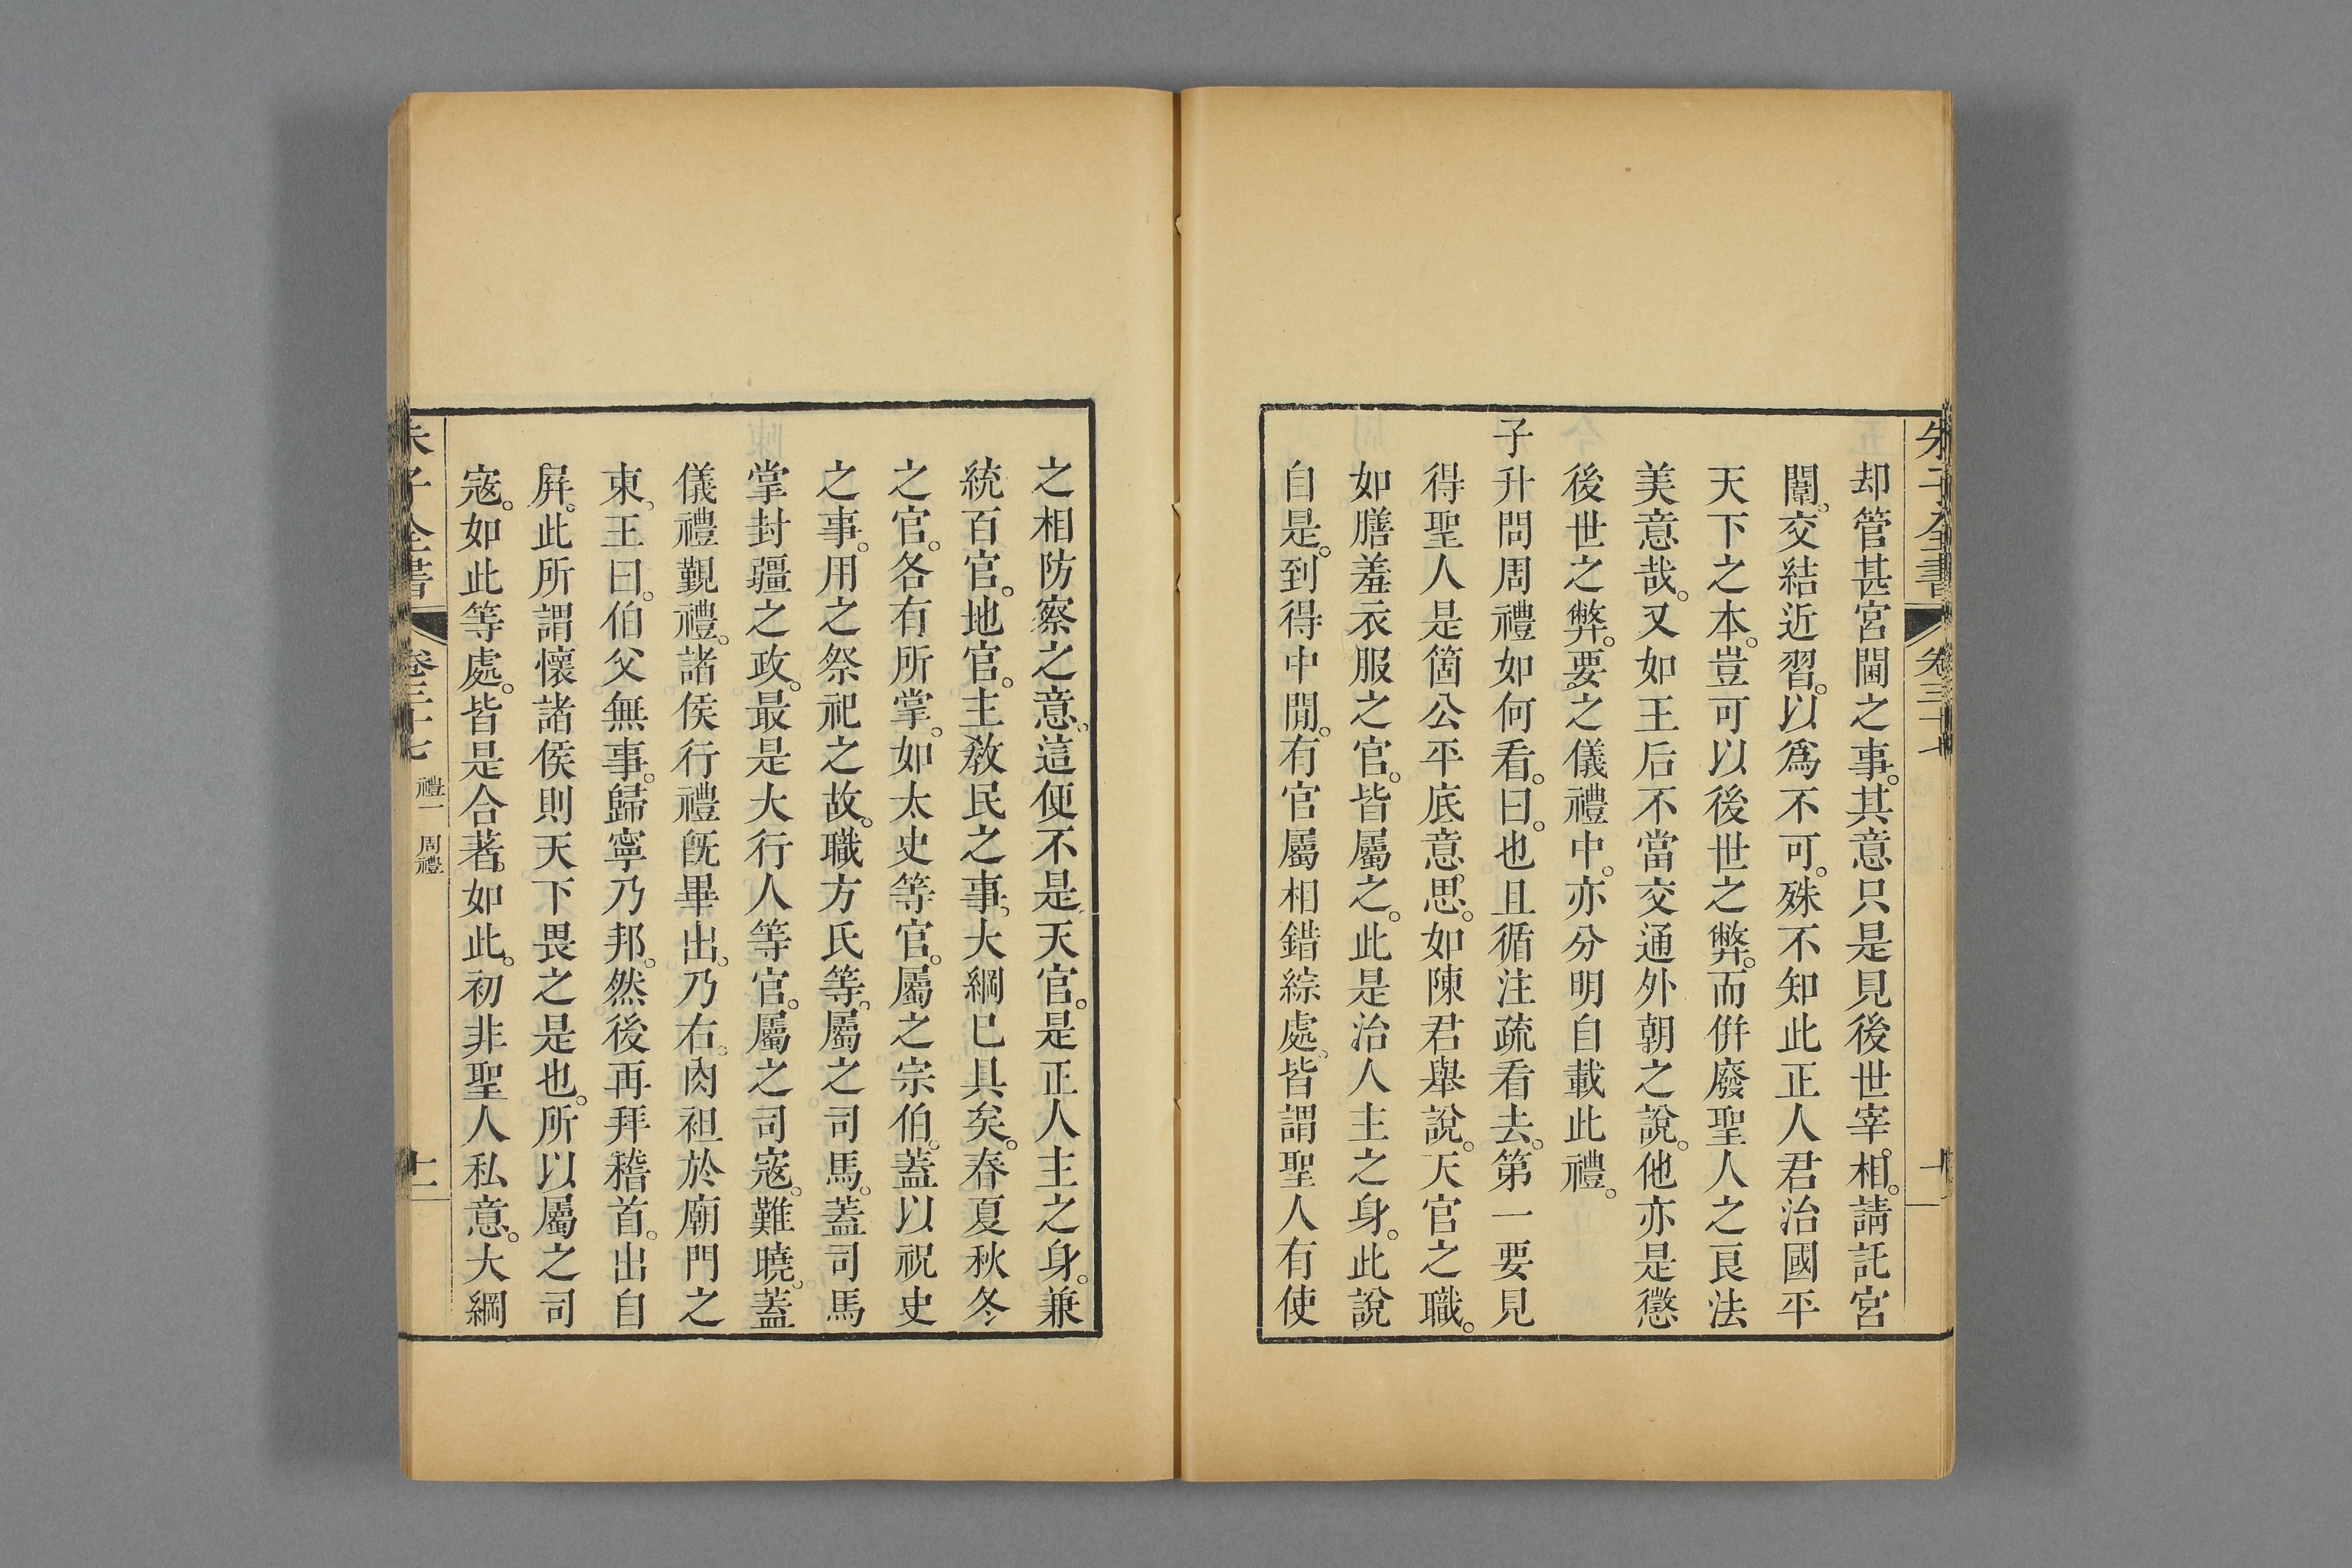 朱子全書 卷三十七
却管甚宮閫之事。其意只是見後世宰相。請託宮
闈。交結近習。以爲不可。殊不知此正人君治國平
天下之本。豈可以後世之弊。而併廢聖人之良法
美意哉。又如王后不當交通外朝之說。他亦是懲
後世之弊。要之儀禮中。亦分明自載此禮。
子升問周禮如何看。曰。也且循注疏看去。第一要見
得聖人是箇公平底意思。如陳君舉說。天官之職。
如膳羞衣服之官。皆屬之。此是治人主之身。此說
自是。到得中閒。有官屬相錯綜處。皆謂聖人有使
之相防察之意。這便不是。天官。是正人主之身。兼
統百官。地官。主敎民之事。大綱已具矣。春夏秋冬
之官。各有所掌。如太史等官。屬之宗伯。蓋以祝史
之事。用之祭祀之故。職方氏等。屬之司馬。蓋司馬
掌封疆之政。最是大行人等官。屬之司寇。難曉。蓋
儀禮覲禮。諸侯行禮旣畢出。乃右肉袒於廟門之
東。王曰。伯父無事。歸寧乃邦。然後再拜稽首。出自
屛。此所謂懷諸侯則天下畏之是也。所以屬之司
寇。如此等處。皆是合著。如此。初非聖人私意。大綱
朱子全書 卷三十七 禮一 周禮 十一